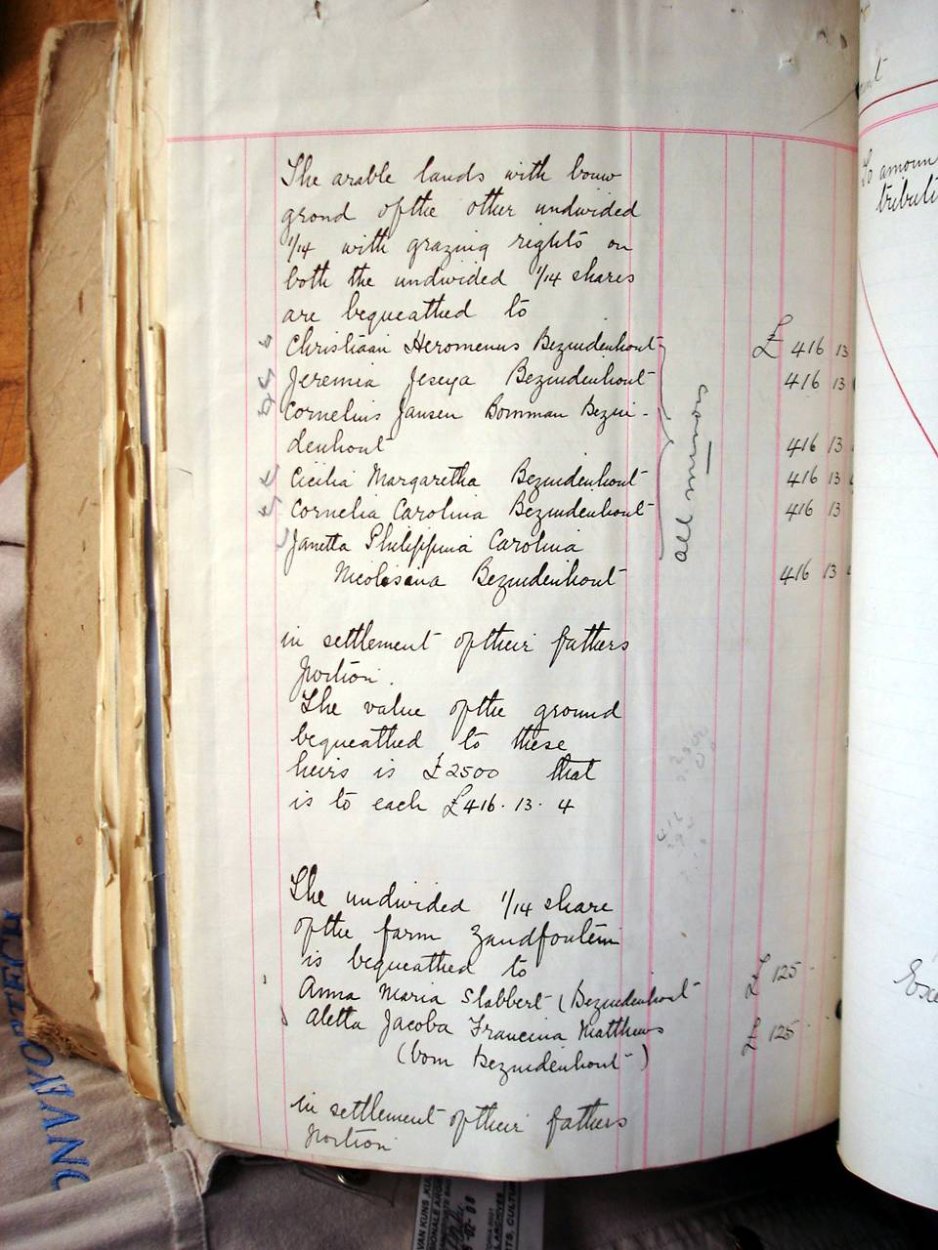 The arable lands with bouw
grond of the other undivided
1/14 with grazing rights on
both the undivided 1/14 shares
are bequeathed to
Christiaan Heromenus Bezuidenhout £ 416 13
Jeremia Jeseya Bezuidenhout 416 13
Cornelius Jansen Bornman Bezui-
denhout 416 13
Cicilia Margaretha Bezuidenhout 416 13
Cornelia Carolina Bezuidenhout 416 13
Janetta Philippina Carolina
Nicolasina Bezuidenhout 416 13
all minors
in settlement of their fathers
portion.
The value of the ground
bequeathed to these
heirs is £2500 that
is to each £416. 13. 4
The undivided 1/14 share
of the farm Zandfontein
is bequeathed to
Anna Maria Slabbert (Bezuidenhout £ 125
Aletta Jacoba Francina Matthews £ 125
(born Bezuidenhout)
in settlement of their fathers
portion
To amoun
tributi